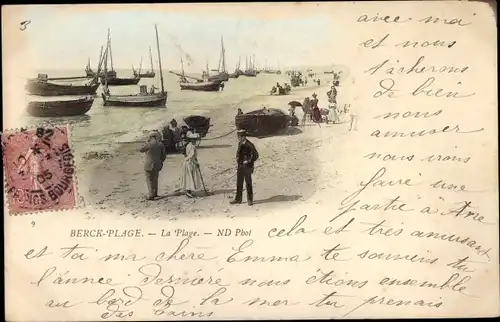 3
avec moi
et nous
tâcherons
de bien
nous
amuser
nous irons
faire une
partie à
cela est très amusant
BERCK-PLAGE. — La Plage. — ND Phot
et toi ma chère Emma te souviens tu
l'année dernière nous étions ensemble
au bord de la mer tu prenais
des bains